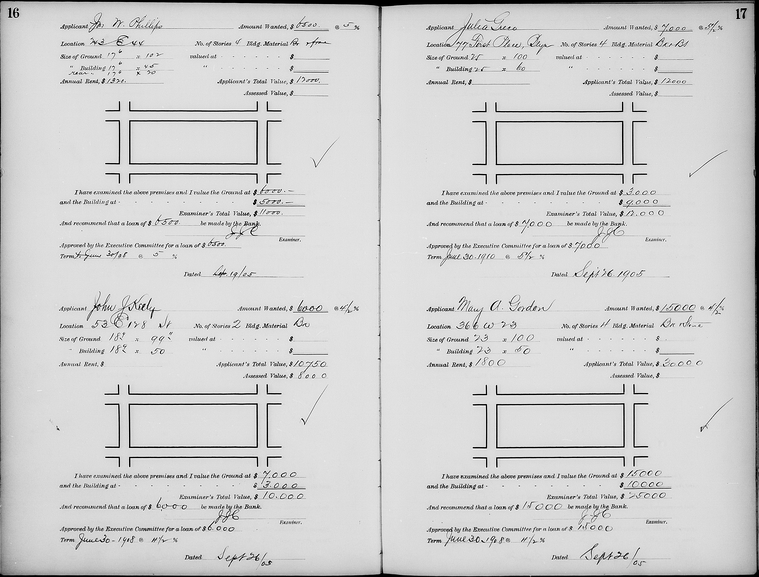 16
Applicant Jno W. Phillips Amount Wanted, $ 6500. @ 5 %
Location 43 E 44 No. of Stories 4 Bldg. Material Br & frame
Size of Ground 17 6 x 102 valued at $
" Building 17 6 x 45 " $
rear 17 6 x 20
Annual Rent, $ 1320. Applicant's Total Value, $ 12000.
Assessed Value, $
I have examined the above premises and I value the Ground at $ 6000.—
and the Building at $ 5000.—
Examiner's Total Value, $ 11000.
And recommend that a loan of $ 6500 be made by the Bank.
Examiner.
Approved by the Executive Committee for a loan of $ 6500
Term to June 30/08 @ 5 %
Dated Sep 19/05
Applicant John J Kiely Amount Wanted, $ 6000 @ 4½ %
Location 53 E 128 St No. of Stories 2 Bldg. Material Br
Size of Ground 18 9 x 99 11 valued at $
" Building 18 9 x 50 " $
Annual Rent, $ Applicant's Total Value, $ 10750
Assessed Value, $ 8000
I have examined the above premises and I value the Ground at $ 7,000
and the Building at $ 3,000
Examiner's Total Value, $ 10,000
And recommend that a loan of $ 6000 be made by the Bank.
Examiner.
Approved by the Executive Committee for a loan of $ 6,000
Term June 30-1908 @ 4½ %
Dated Sept 26/05
17
Applicant Julia Greco Amount Wanted, $ 7,000 @ 5½ %
Location 77 First Place, Bkyn No. of Stories 4 Bldg. Material Br & BS
Size of Ground 25 x 100 valued at $
" Building 25 x 60 " $
Annual Rent, $ Applicant's Total Value, $ 12000
Assessed Value, $
I have examined the above premises and I value the Ground at $ 3,000
and the Building at $ 9,000
Examiner's Total Value, $ 12,000
And recommend that a loan of $ 7000 be made by the Bank.
Examiner.
Approved by the Executive Committee for a loan of $ 7000
Term June 30. 1910 @ 5½ %
Dated Sept 26 1905
Applicant Mary A. Gordon Amount Wanted, $ 15000 @ 4½ %
Location 366 W 23 No. of Stories 4 Bldg. Material Br
Size of Ground 23 x 100 valued at $
" Building 23 x 50 " $
Annual Rent, $ 1800 Applicant's Total Value, $ 30000
Assessed Value, $
I have examined the above premises and I value the Ground at $ 15000
and the Building at $ 10000
Examiner's Total Value, $ 25000
And recommend that a loan of $ 15000 be made by the Bank.
Examiner.
Approved by the Executive Committee for a loan of $ 15000
Term June 30-1908 @ 4½ %
Dated Sept 26/05